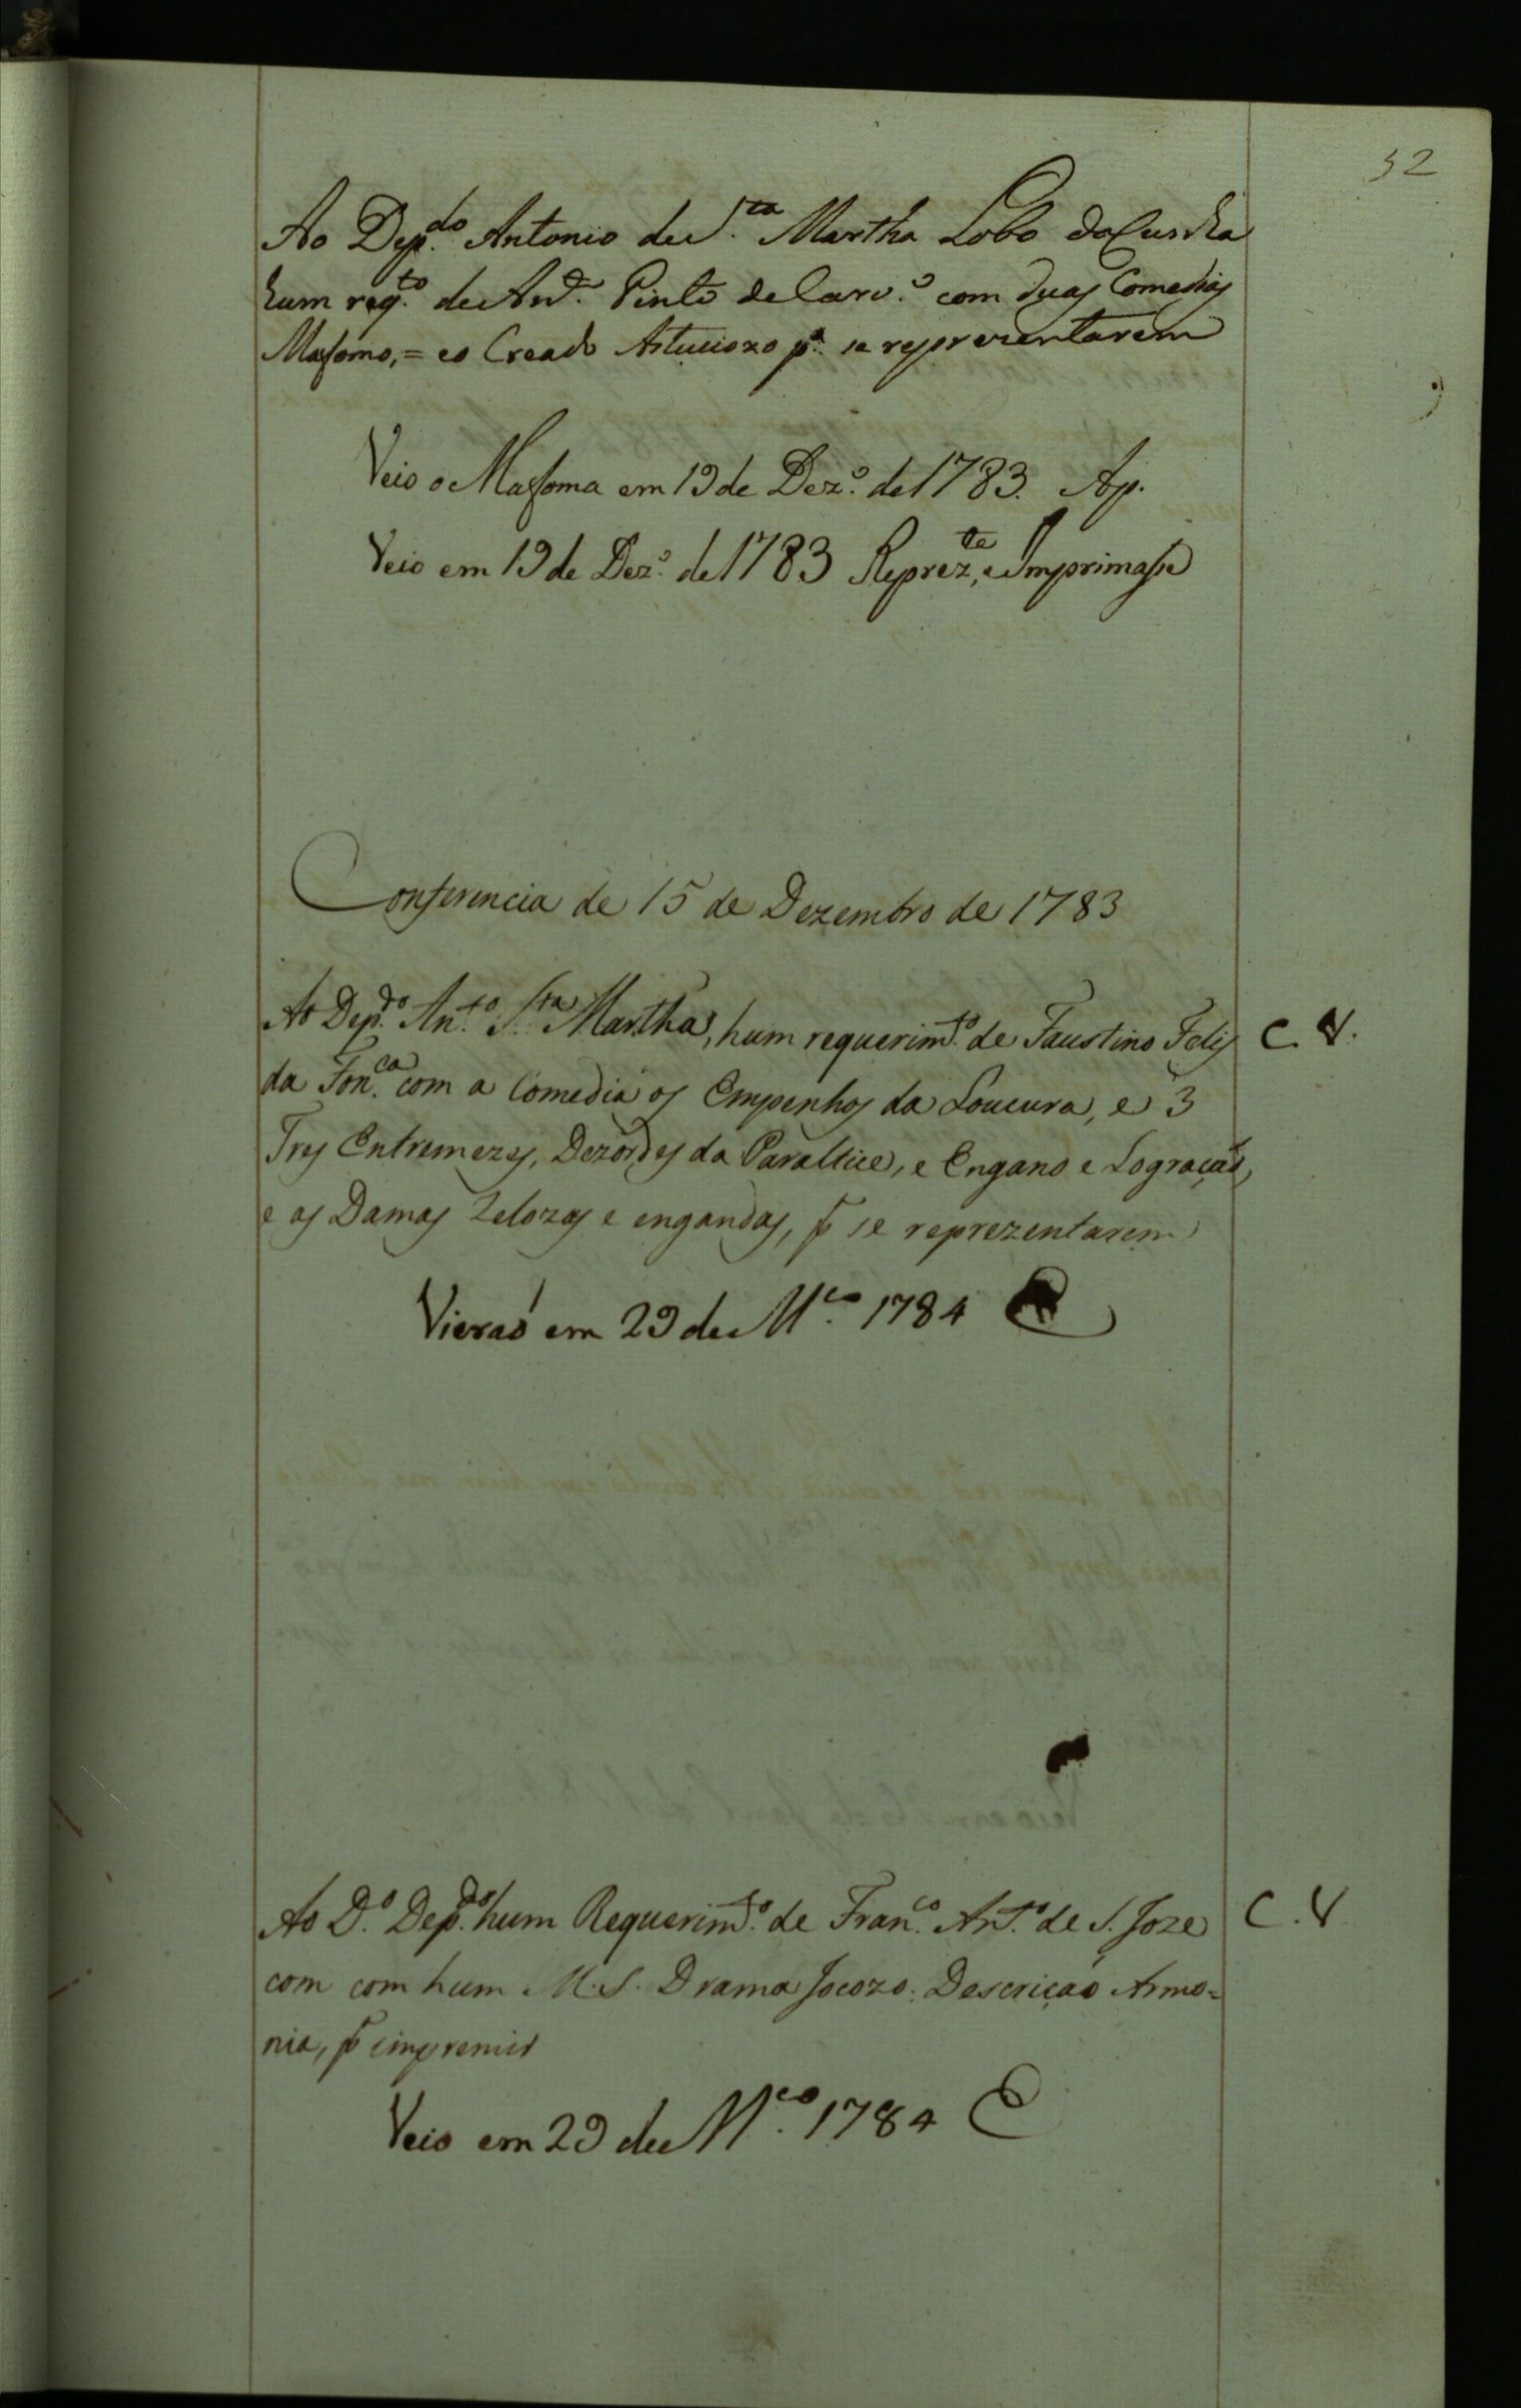 32
Ao Dep.do Antonio de S.ta Martha Lobo da Cunha
hum reg.to de An.to Pinto de Carv.o com duas Comedias
Mafoma, = e o Creado Astuciozo p.a se reprezentarem
Veio o Mafoma em 19 de Dez.o de 1783. Ap.
Veio em 19 de Dez.o de 1783 Reprez.te, e Imprimasse
Conferencia de 15 de Dezembro de 1783
Ao Dep.do Ant.o S.ta Martha, hum requerim.to de Faustino Felis C. V.
da Fon.ca com a Comedia os Empenhos da Loucura, e 3
Tres Entremezes, Dezordes da Paraltice, e Engano e Lograçaõ,
e as Damas Zelozas e engandas, p.a se reprezentarem
Vieraõ em 29 de M.ço 1784 E
Ao D.o Dep.do hum Requerim.to de Fran.co Ant.o de S. Joze C. V
com com hum M.S. Drama Jocozo: Descriçaõ Armo=
nia, p.a impremir
Veio em 29 de M.ço 1784 E